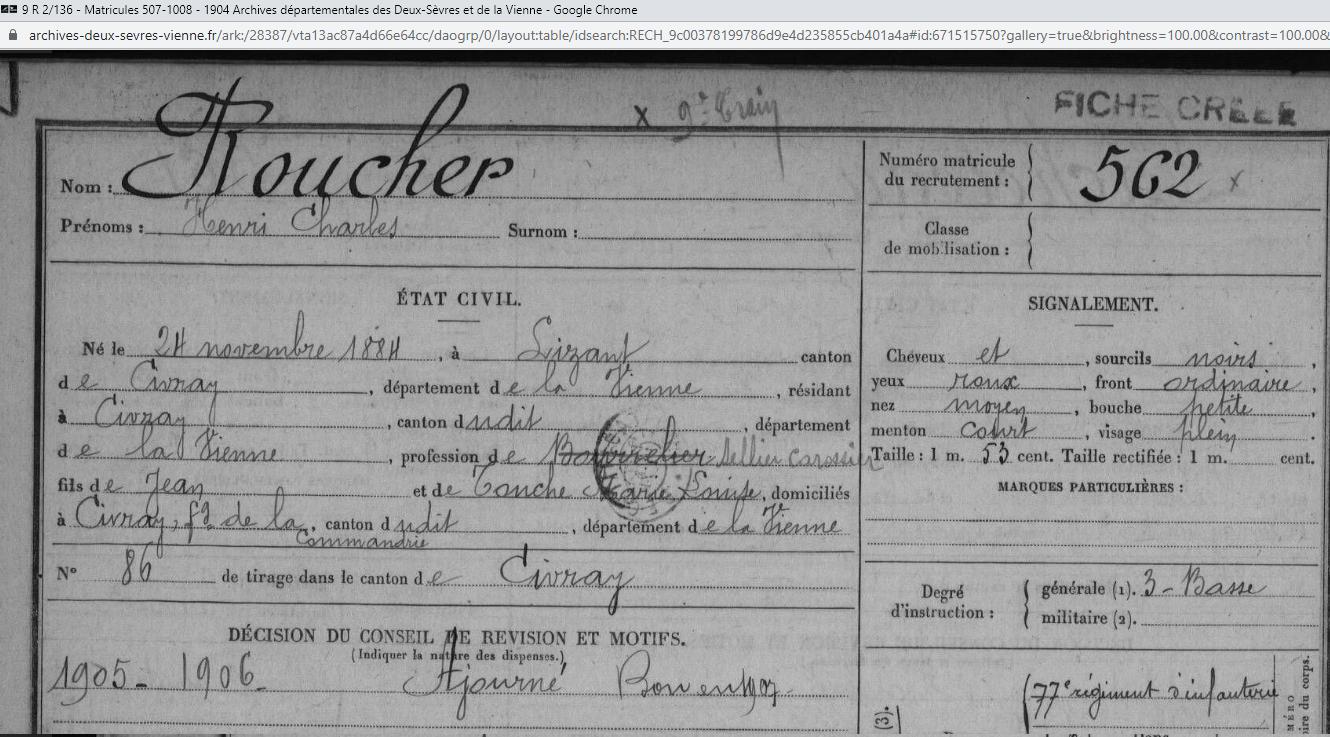 9 R 2/136 - Matricules 507-1008 - 1904 Archives départementales des Deux-Sèvres et de la Vienne - Google Chrome
archives-deux-sevres-vienne.fr/ark:/28387/vta13ac87a4d66e64cc/daogrp/0/layout:table/idsearch:RECH_9c00378199786d9e4d235855cb401a4a#id:671515750?gallery=true&brightness=100.00&contrast=100.00&
x 9e Train
FICHE CRÉÉE
Nom : Roucher
Numéro matricule du recrutement : 562 x
Prénoms : Henri Charles Surnom :
Classe de mobilisation :
ÉTAT CIVIL.
Né le 24 novembre 1884, à Lizant canton
de Civray, département de la Vienne, résidant
à Civray, canton dudit, département
de la Vienne, profession de Bourrelier Sellier Carossier
fils de Jean et de Touche Marie Louise, domiciliés
à Civray, fg de la Commandrie, canton dudit, département de la Vienne
N° 86 de tirage dans le canton de Civray
DÉCISION DU CONSEIL DE REVISION ET MOTIFS.
(Indiquer la nature des dispenses.)
1905 - 1906 Ajourné Bon en 1907
SIGNALEMENT.
Cheveux et, sourcils noirs,
yeux roux, front ordinaire,
nez moyen, bouche petite,
menton court, visage plein.
Taille : 1 m. 53 cent. Taille rectifiée : 1 m. cent.
MARQUES PARTICULIÈRES :
Degré d'instruction :
générale (1). 3 - Basse
militaire (2).
77e régiment d'infanterie
(3).